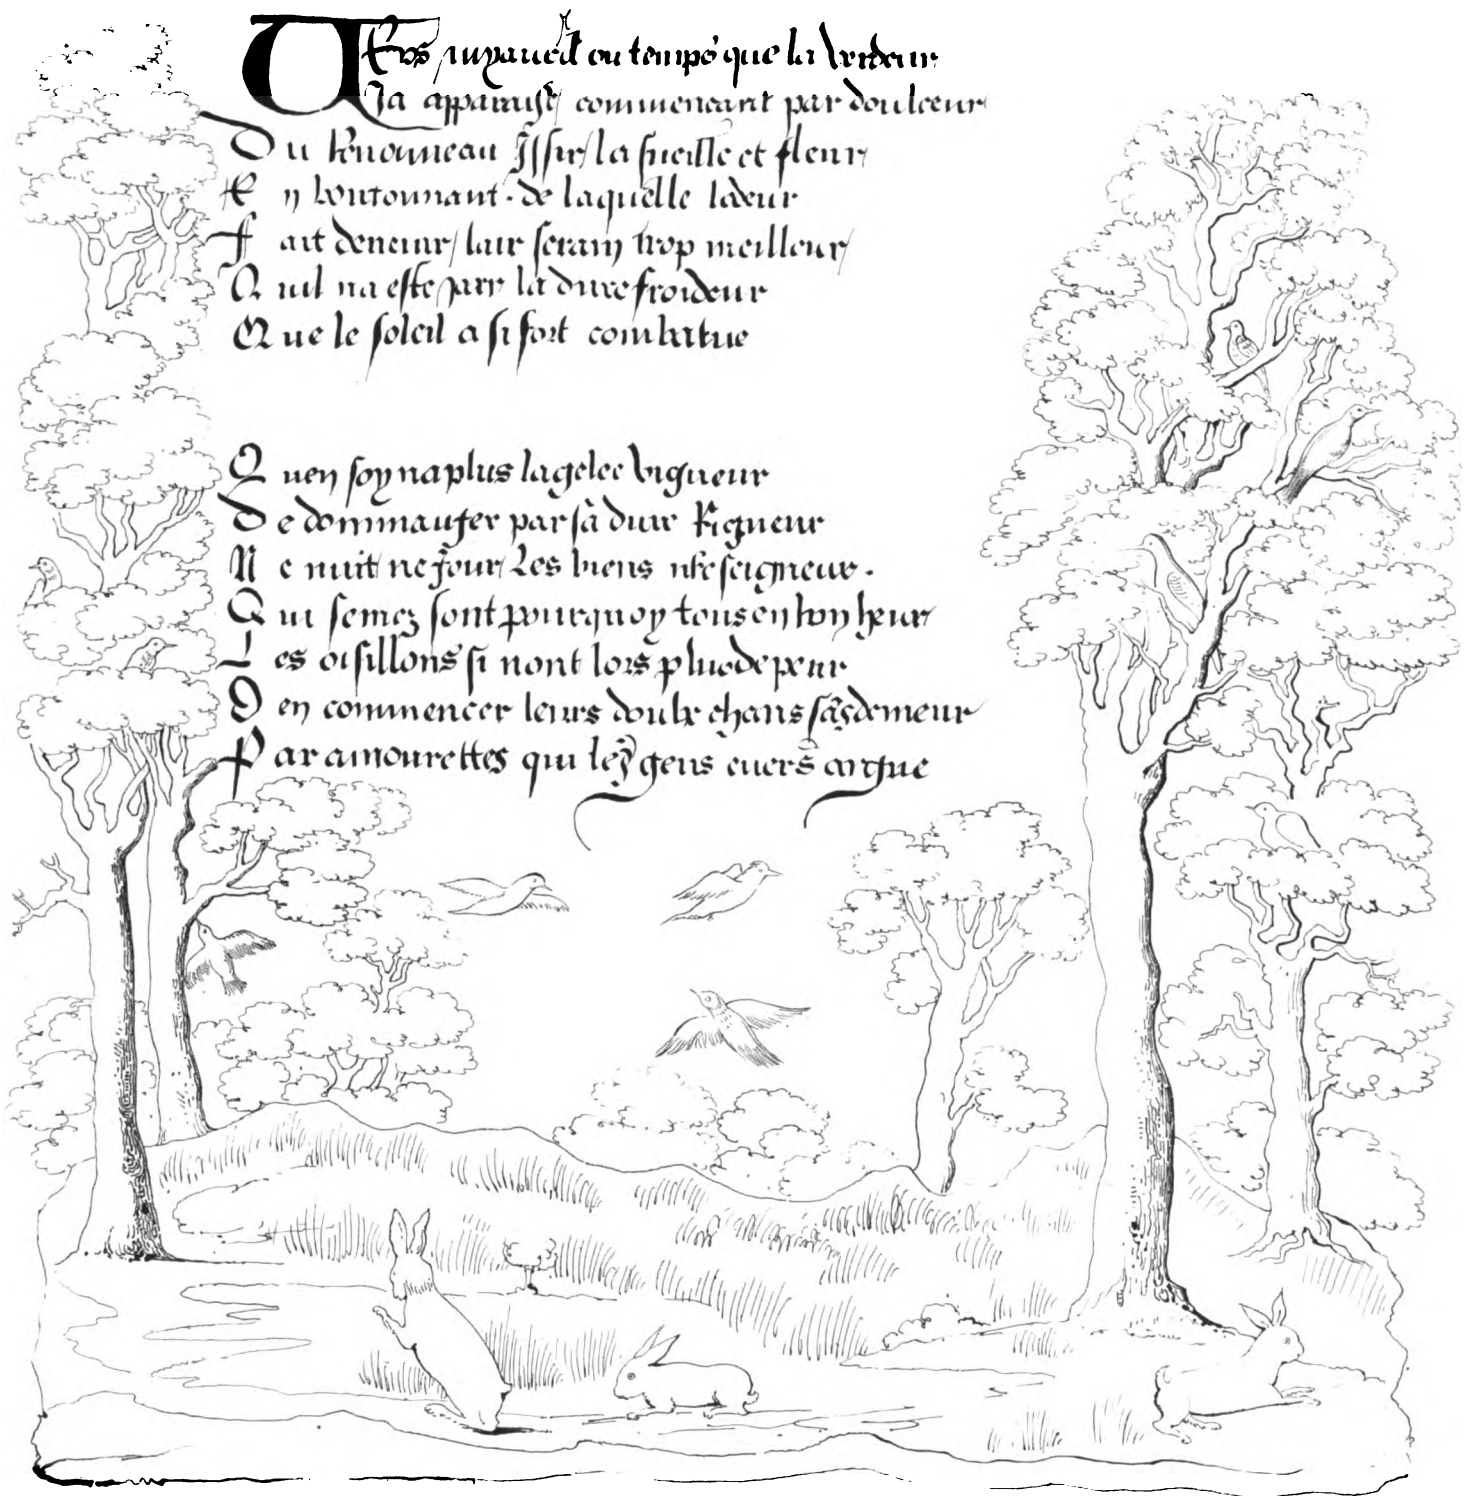 Vers my avril ou temps que la verdeur
Ja apparaist / commencant par doulceur
Du Renouueau Issir / la fueille et fleur /
En boutonnant . de laquelle lodeur
Fait deuenir / lair serain trop meilleur /
Quil na este par la dure froideur
Que le soleil a si fort combatue
Quen soy na plus lagelee vigueur
De dommauger par sa dure Rigueur
Ne nuit ne jour / Les biens nre seigneur .
Qui semez sont pourquoy tous en bon heur /
Les oisillons si nont lors plus de peur
Den commencer leurs doulx chans sãs demeur
Par amourettes qui les gens euers argue